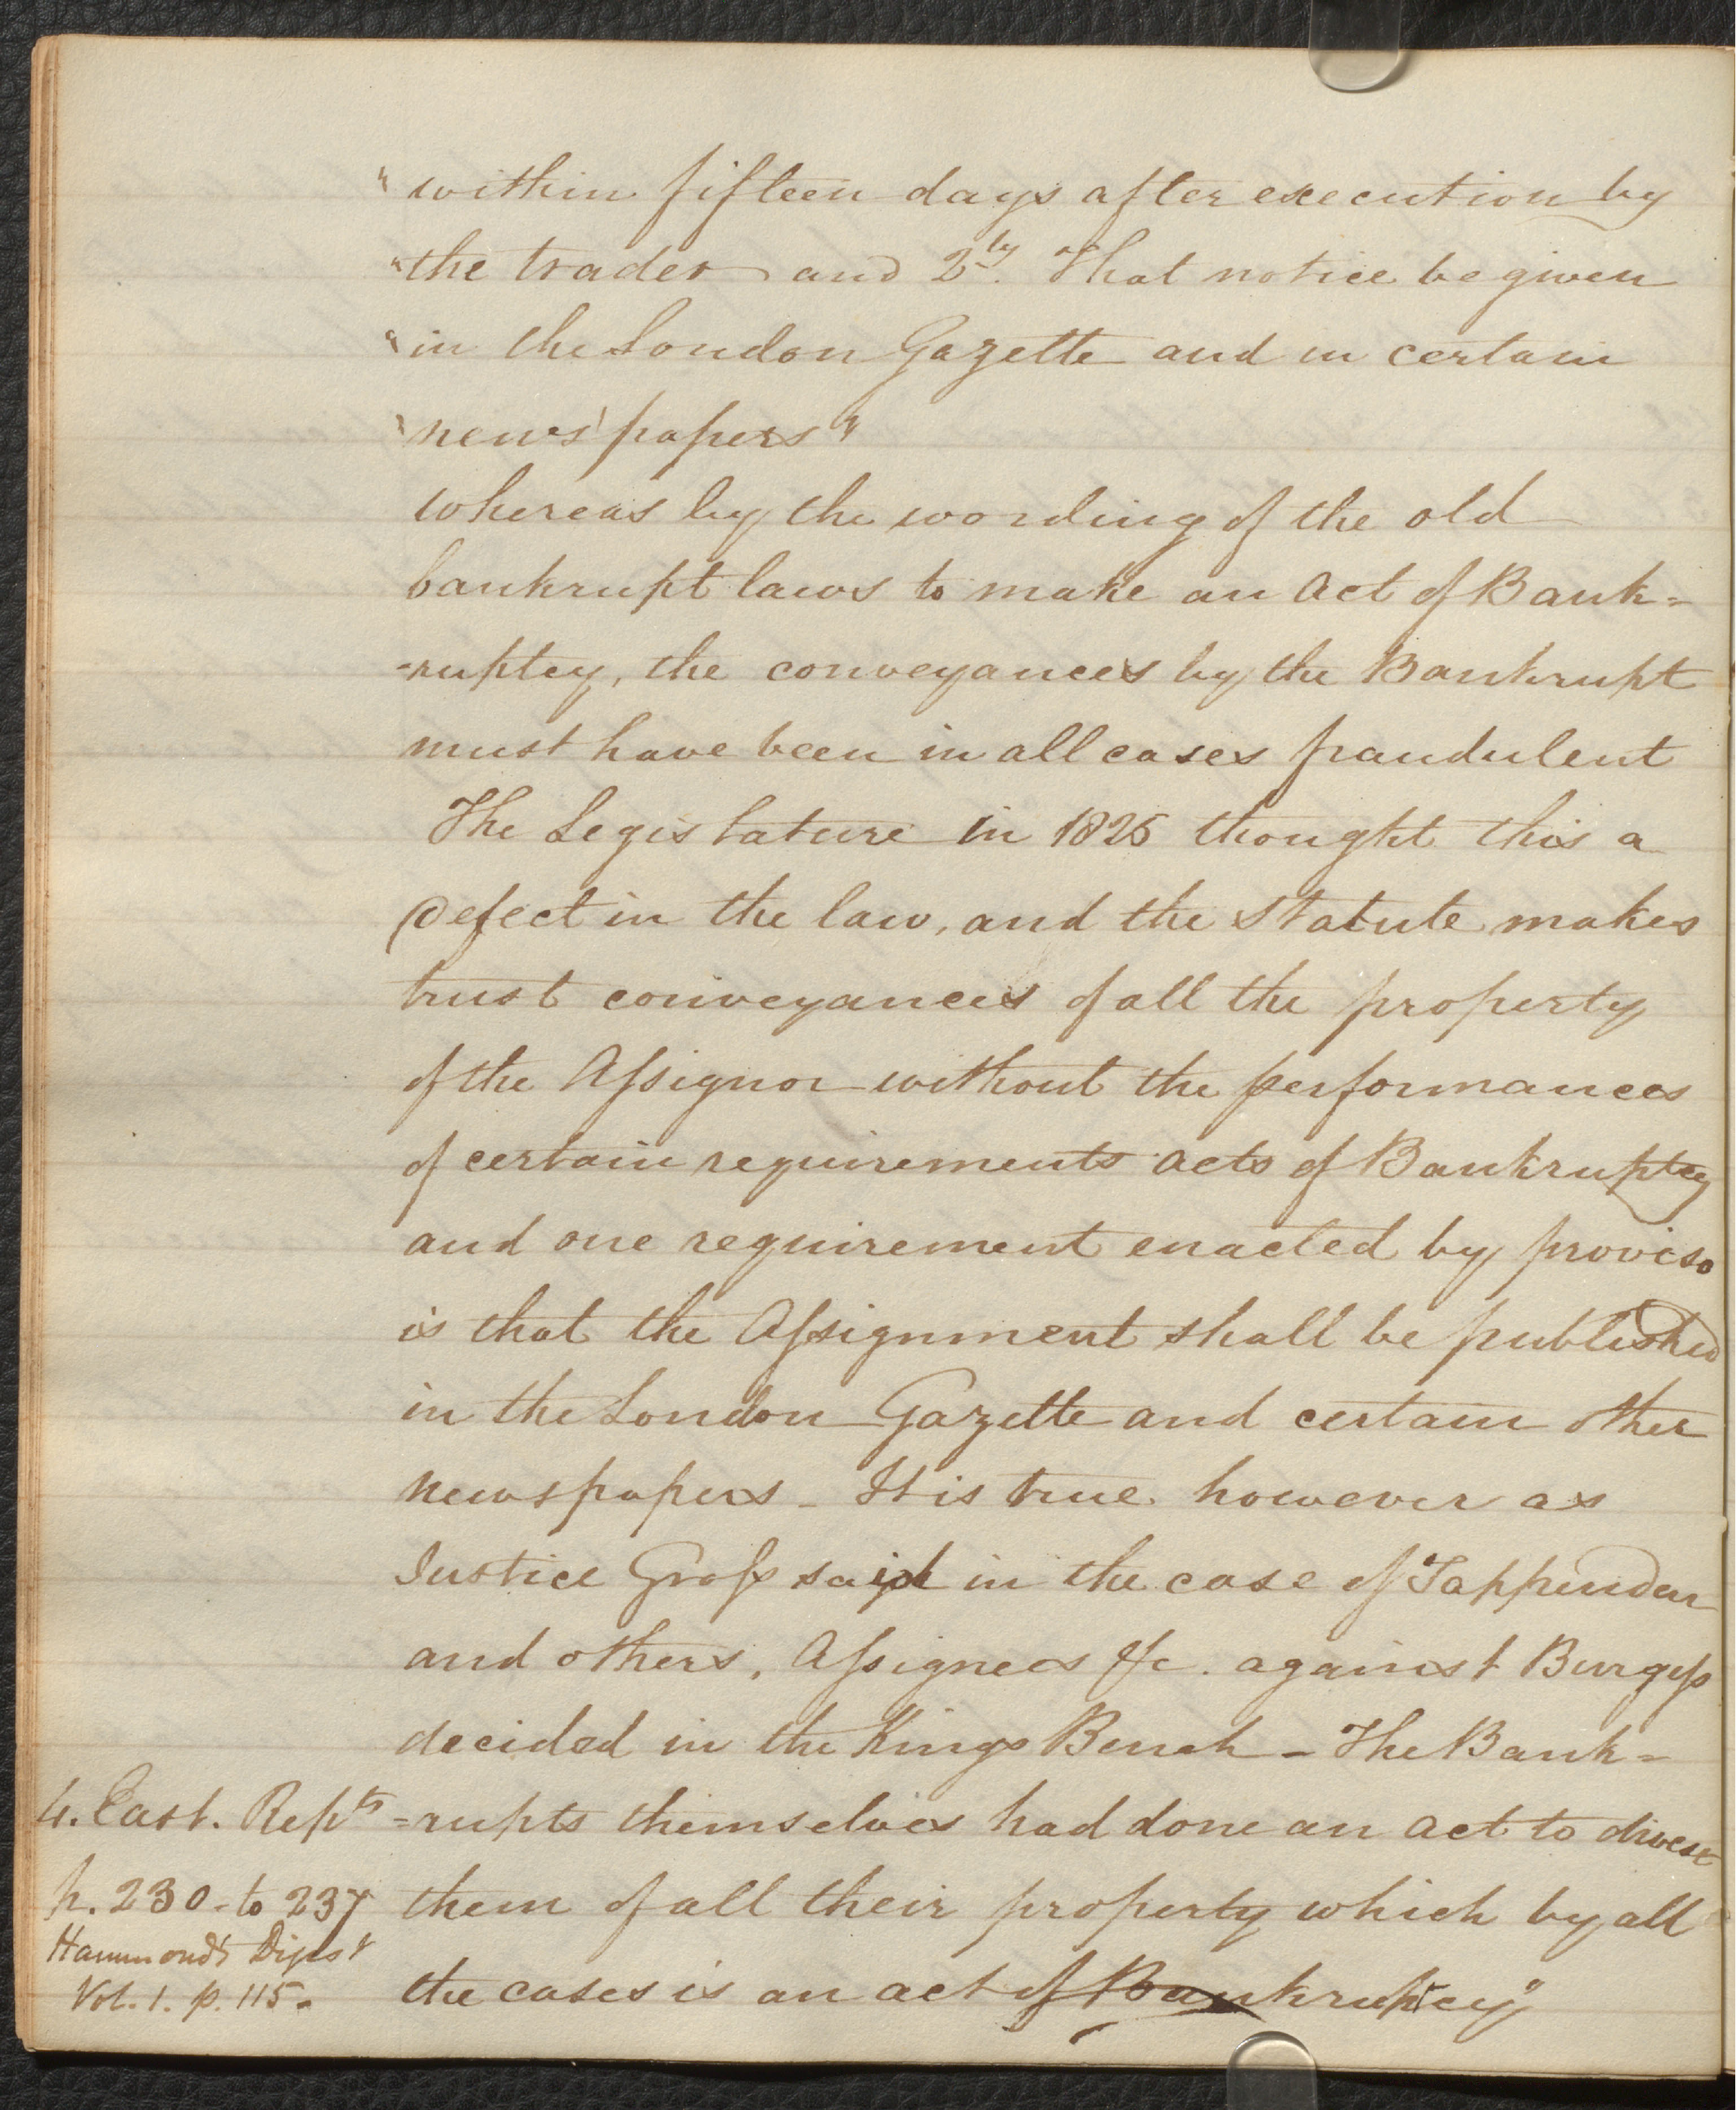 " within fifteen days after execution by
" the trader and 2ly. That notice be given
" in the London Gazette and in certain
" news papers "
whereas by the wording of the old
bankrupt laws to make an Act of Bank=
=ruptcy, the conveyances by the Bankrupt
must have been in all cases fraudulent
The Legislature in 1825 thought this a
Defect in the law, and the Statute makes
trust conveyances of all the property
of the Assignor without the performances
of certain requirements acts of Bankruptcy
and one requirement enacted by proviso
is that the Assignment shall be published
in the London Gazette and certain other
newspapers - It is true however as
Justice Gross said in the case of Tappenden
and others, Assignees &c. against Burgess
decided in the Kings Bench - The Bank=
4. East. Repts =rupts themselves had done an act to divest
p. 230 - to 237 them of all their property which by all
Hammond's Digest
Vol. 1. p. 115. the cases is an act of Bankruptcy"